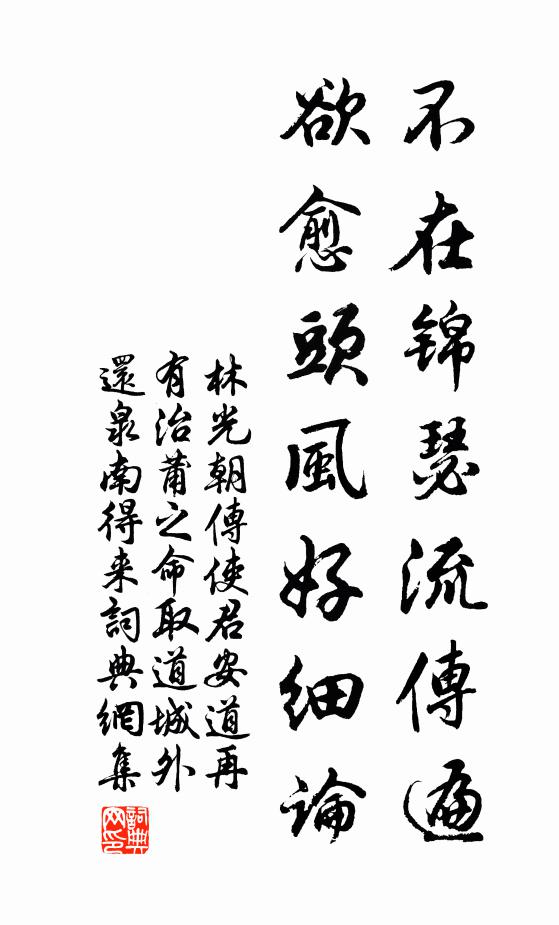 不在錦瑟流傳遍
欲愈頭風好細論
林光朝傳使君安道再
有治莆之命取道城外
還泉南得来詞典網集
詞典网印